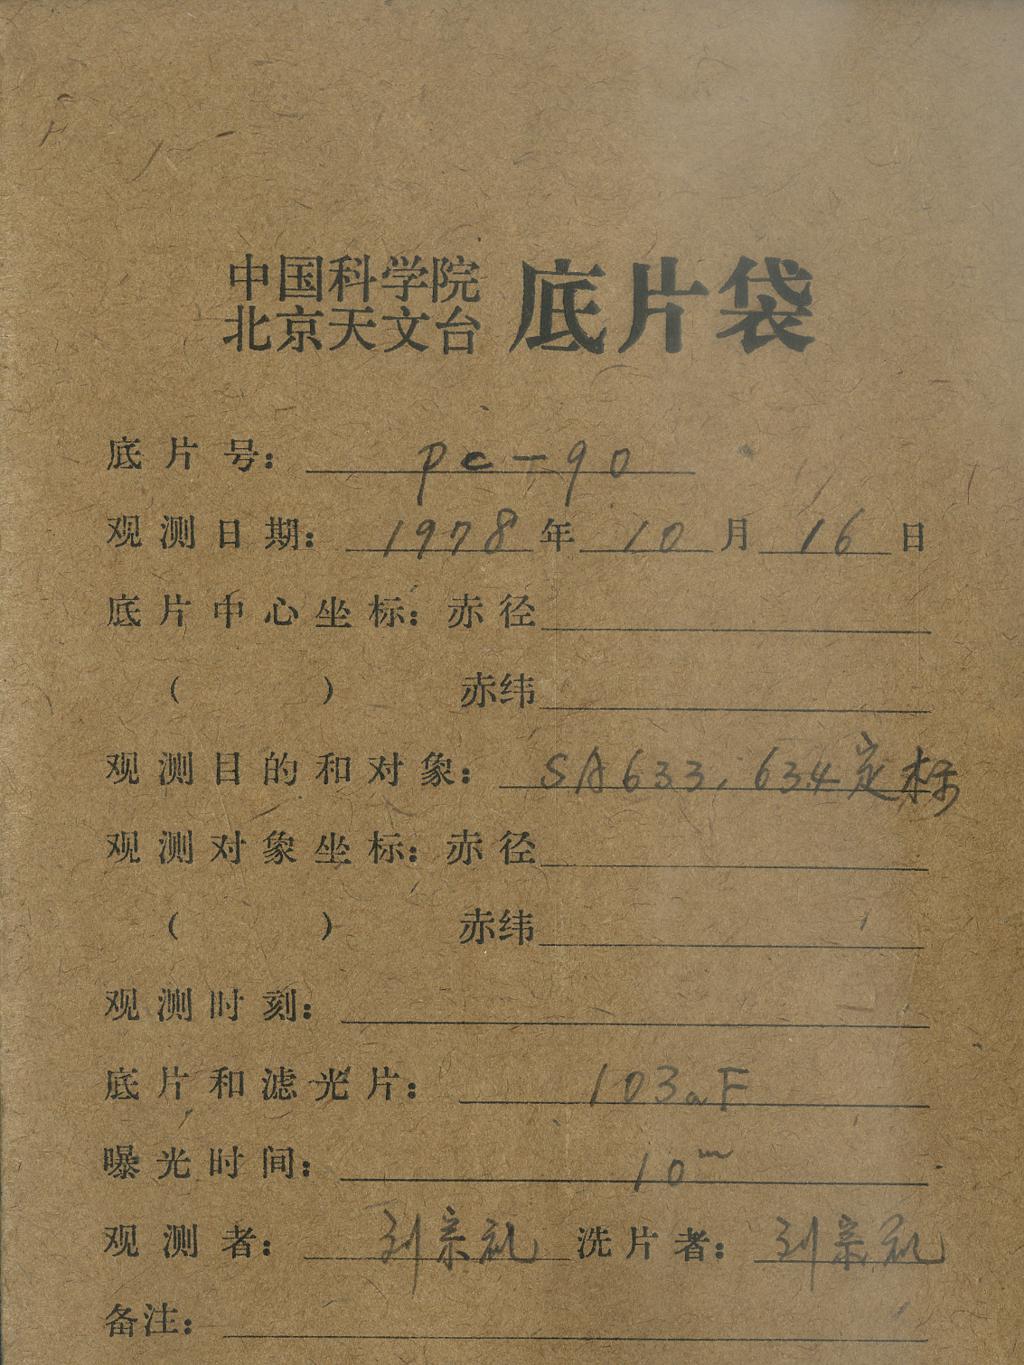 中国科学院
北京天文台 底片袋
底片号: pc-90
观测日期: 1978年10月16日
底片中心坐标: 赤径
( ) 赤纬
观测目的和对象: SA633, 634定标
观测对象坐标: 赤径
( ) 赤纬
观测时刻:
底片和滤光片: 103aF
曝光时间: 10m
观测者: 刘宗礼 洗片者: 刘宗礼
备注: